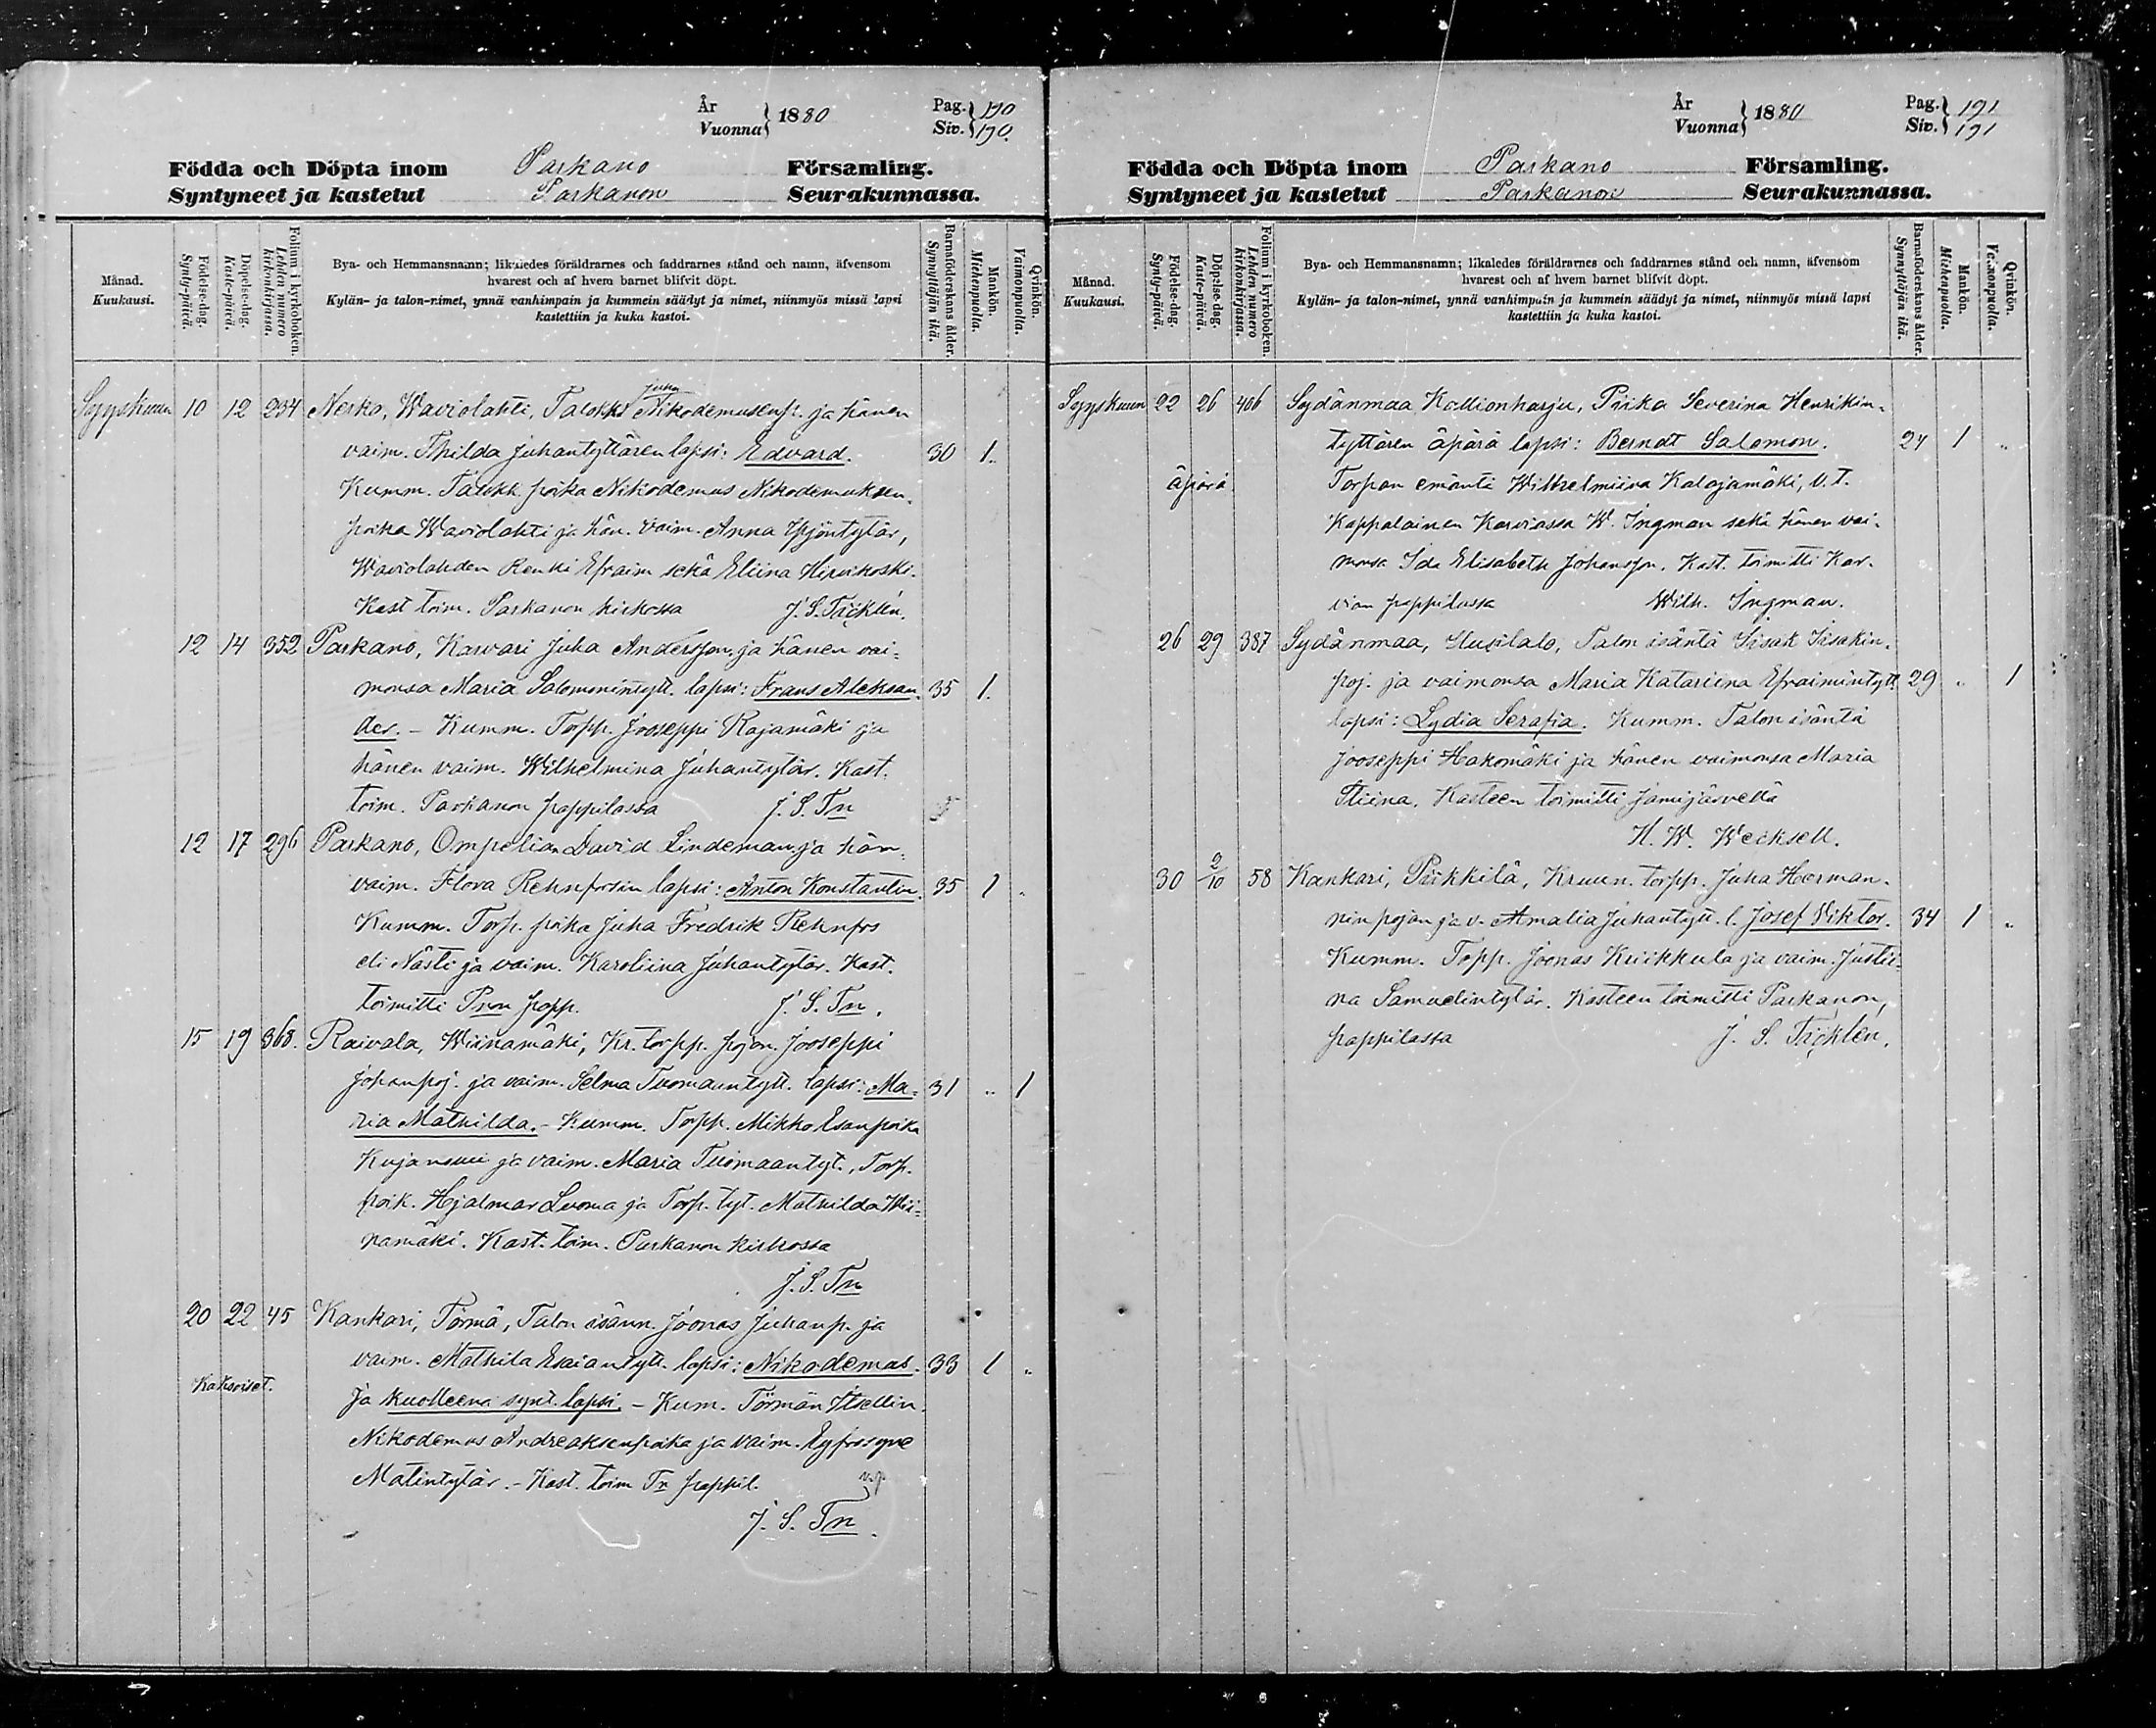 År
Vuonna} 1880
Pag.} 190
Siv.} 190.
Födda och Döpta inom Parkano Församling.
Syntyneet ja kastetut Parkanon Seurakunnassa.
Månad.
Kuukausi.
Födelse-dag.
Synty-päivä.
Döpelse-dag.
Kaste-päivä.
Folium i kyrkoboken.
Lehden numero kirkonkirjassa.
Bya- och Hemmansnamn; likaledes föräldrarnes och faddrarnes stånd och namn, äfvensom
hvarest och af hvem barnet blifvit döpt.
Kylän- ja talon-nimet, ynnä vanhimpain ja kummein säädyt ja nimet, niinmyös missä lapsi
kastettiin ja kuka kastoi.
Barnaföderskans ålder.
Synnyttäjän ikä.
Mankön.
Miehenpuolla.
Qvinkön.
Vaimonpuolla.
Juha
Syyskuun 10 12 234 Nerko, Waviolahti, Talokkl Nikodemusenp. ja hänen
vaim. Thilda Juhantyttären lapsi: Edvard. 30 1 "
Kumm. Talokk. poika Nikodemus Nikodemuksen-
poika Waviolahti ja hän. vaim. Anna Yrjöntytär,
Waviolahden Renki Efraim sekä Eliina Hirvikoski.
Kast toim. Parkanon kirkossa J. S. Täcklén.
12 14 352 Parkano, Karvari Juha Andersson ja hänen vai-
monsa Maria Salomonintytt. lapsi: Frans Aleksan- 35 1.
der. - Kumm. Torpp. Jooseppi Rajamäki ja
hänen vaim. Wilhelmina Juhantytär. Kast.
toim. Parkanon pappilassa J. S. Tn
12 17 296 Parkano, Ompelian David Lindeman ja hän.
vaim. Flora Rehnforsin lapsi: Anton Konstantin. 35 1 "
Kumm. Torp. poika Juha Fredrik Rehnfors
eli Nästi ja vaim. Karoliina Juhantytär. Kast.
toimitti Pnon papp. J. S. Tn.
15 19 368. Raivala, Wiinamäki, Kr. torpp. pojan Jooseppi
Johanpoj. ja vaim. Selma Tuomaantytt. lapsi: Ma- 31 " 1
ria Mathilda. - Kumm. Torpp. Mikko Esanpoika
Kujansuu ja vaim. Maria Tuomaantyt., Torp.
poik. Hjalmar Luoma ja Torp. tyt. Mathilda Wii-
namäki. Kast. toim. Parkanon kirkossa
J. S. Tn
20 22 45 Kankari, Törmä, Talon isänn. Joonas Juhanp. ja
vaim. Mathilda Esaiantytt. lapsi: Nikodemus. 33 1 "
Kaksoiset. ja kuolleena synt. lapsi. - Kum. Törmän Itsellin.
Nikodemus Andreaksenpoika ja vaim. Eyfrosyne
Matintytär. - Kast. toim Tn pappil.
J. S. Tn.
År
Vuonna} 1880
Pag.} 191
Siv.} 191
Födda och Döpta inom Parkano Församling.
Syntyneet ja kastetut Parkanon Seurakunnassa.
Månad.
Kuukausi.
Födelse-dag.
Synty-päivä.
Döpelse-dag.
Kaste-päivä.
Folium i kyrkoboken.
Lehden numero kirkonkirjassa.
Bya- och Hemmansnamn; likaledes föräldrarnes och faddrarnes stånd och namn, äfvensom
hvarest och af hvem barnet blifvit döpt.
Kylän- ja talon-nimet, ynnä vanhimpain ja kummein säädyt ja nimet, niinmyös missä lapsi
kastettiin ja kuka kastoi.
Barnaföderskans ålder.
Synnyttäjän ikä.
Mankön.
Miehenpuolla.
Qvinkön.
Vaimonpuolla.
Syyskuun 22 26 406 Sydänmaa Kallionharju, Piika Severina Henrikin-
tyttären äpärä lapsi: Berndt Salomon. 24 1 "
äpärä Torpan emäntä Wilhelmiina Kalajamäki, V. t.
Kappalainen Karviassa W. Ingman sekä hänen vai-
monsa Ida Elisabeth Johansson. Kast. toimitti Kar-
vian pappilassa Wilh. Ingman.
26 29 387 Sydänmaa, Uusitalo, Talon isäntä Iisak Iisakin-
poj. ja vaimonsa Maria Katariina Efraimintytt. 29 " 1
lapsi: Lydia Serafia. Kumm. Talon isäntä
Jooseppi Hakomäki ja hänen vaimonsa Maria
Stiina. Kasteen toimitti Jämijärvellä
H. W. Wecksell.
30 2/10 58 Kankari, Päikkilä, Kruun. torpp. Juha Herman-
nin pojan ja v. Amalia Juhantytt. l. Josef Viktor. 34 1 "
Kumm. Topp. Joonas Kriikkula ja vaim. Justii-
na Samuelintytär. Kasteen toimitti Parkanon
pappilassa J. S. Täcklén.